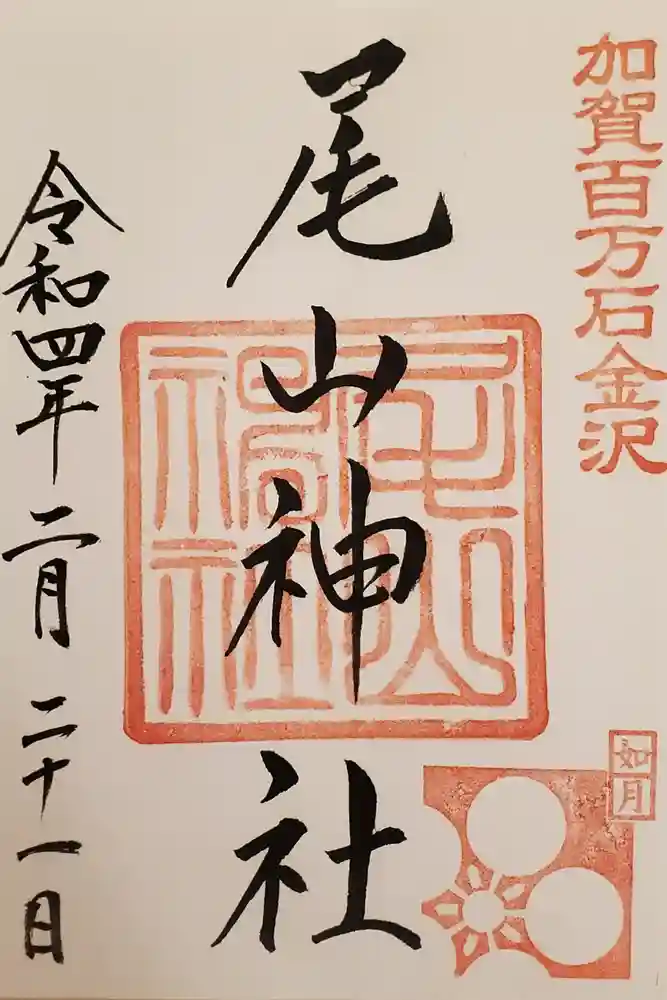 加賀百万石金沢
尾山神社
尾山神社
如月
令和四年二月二十一日